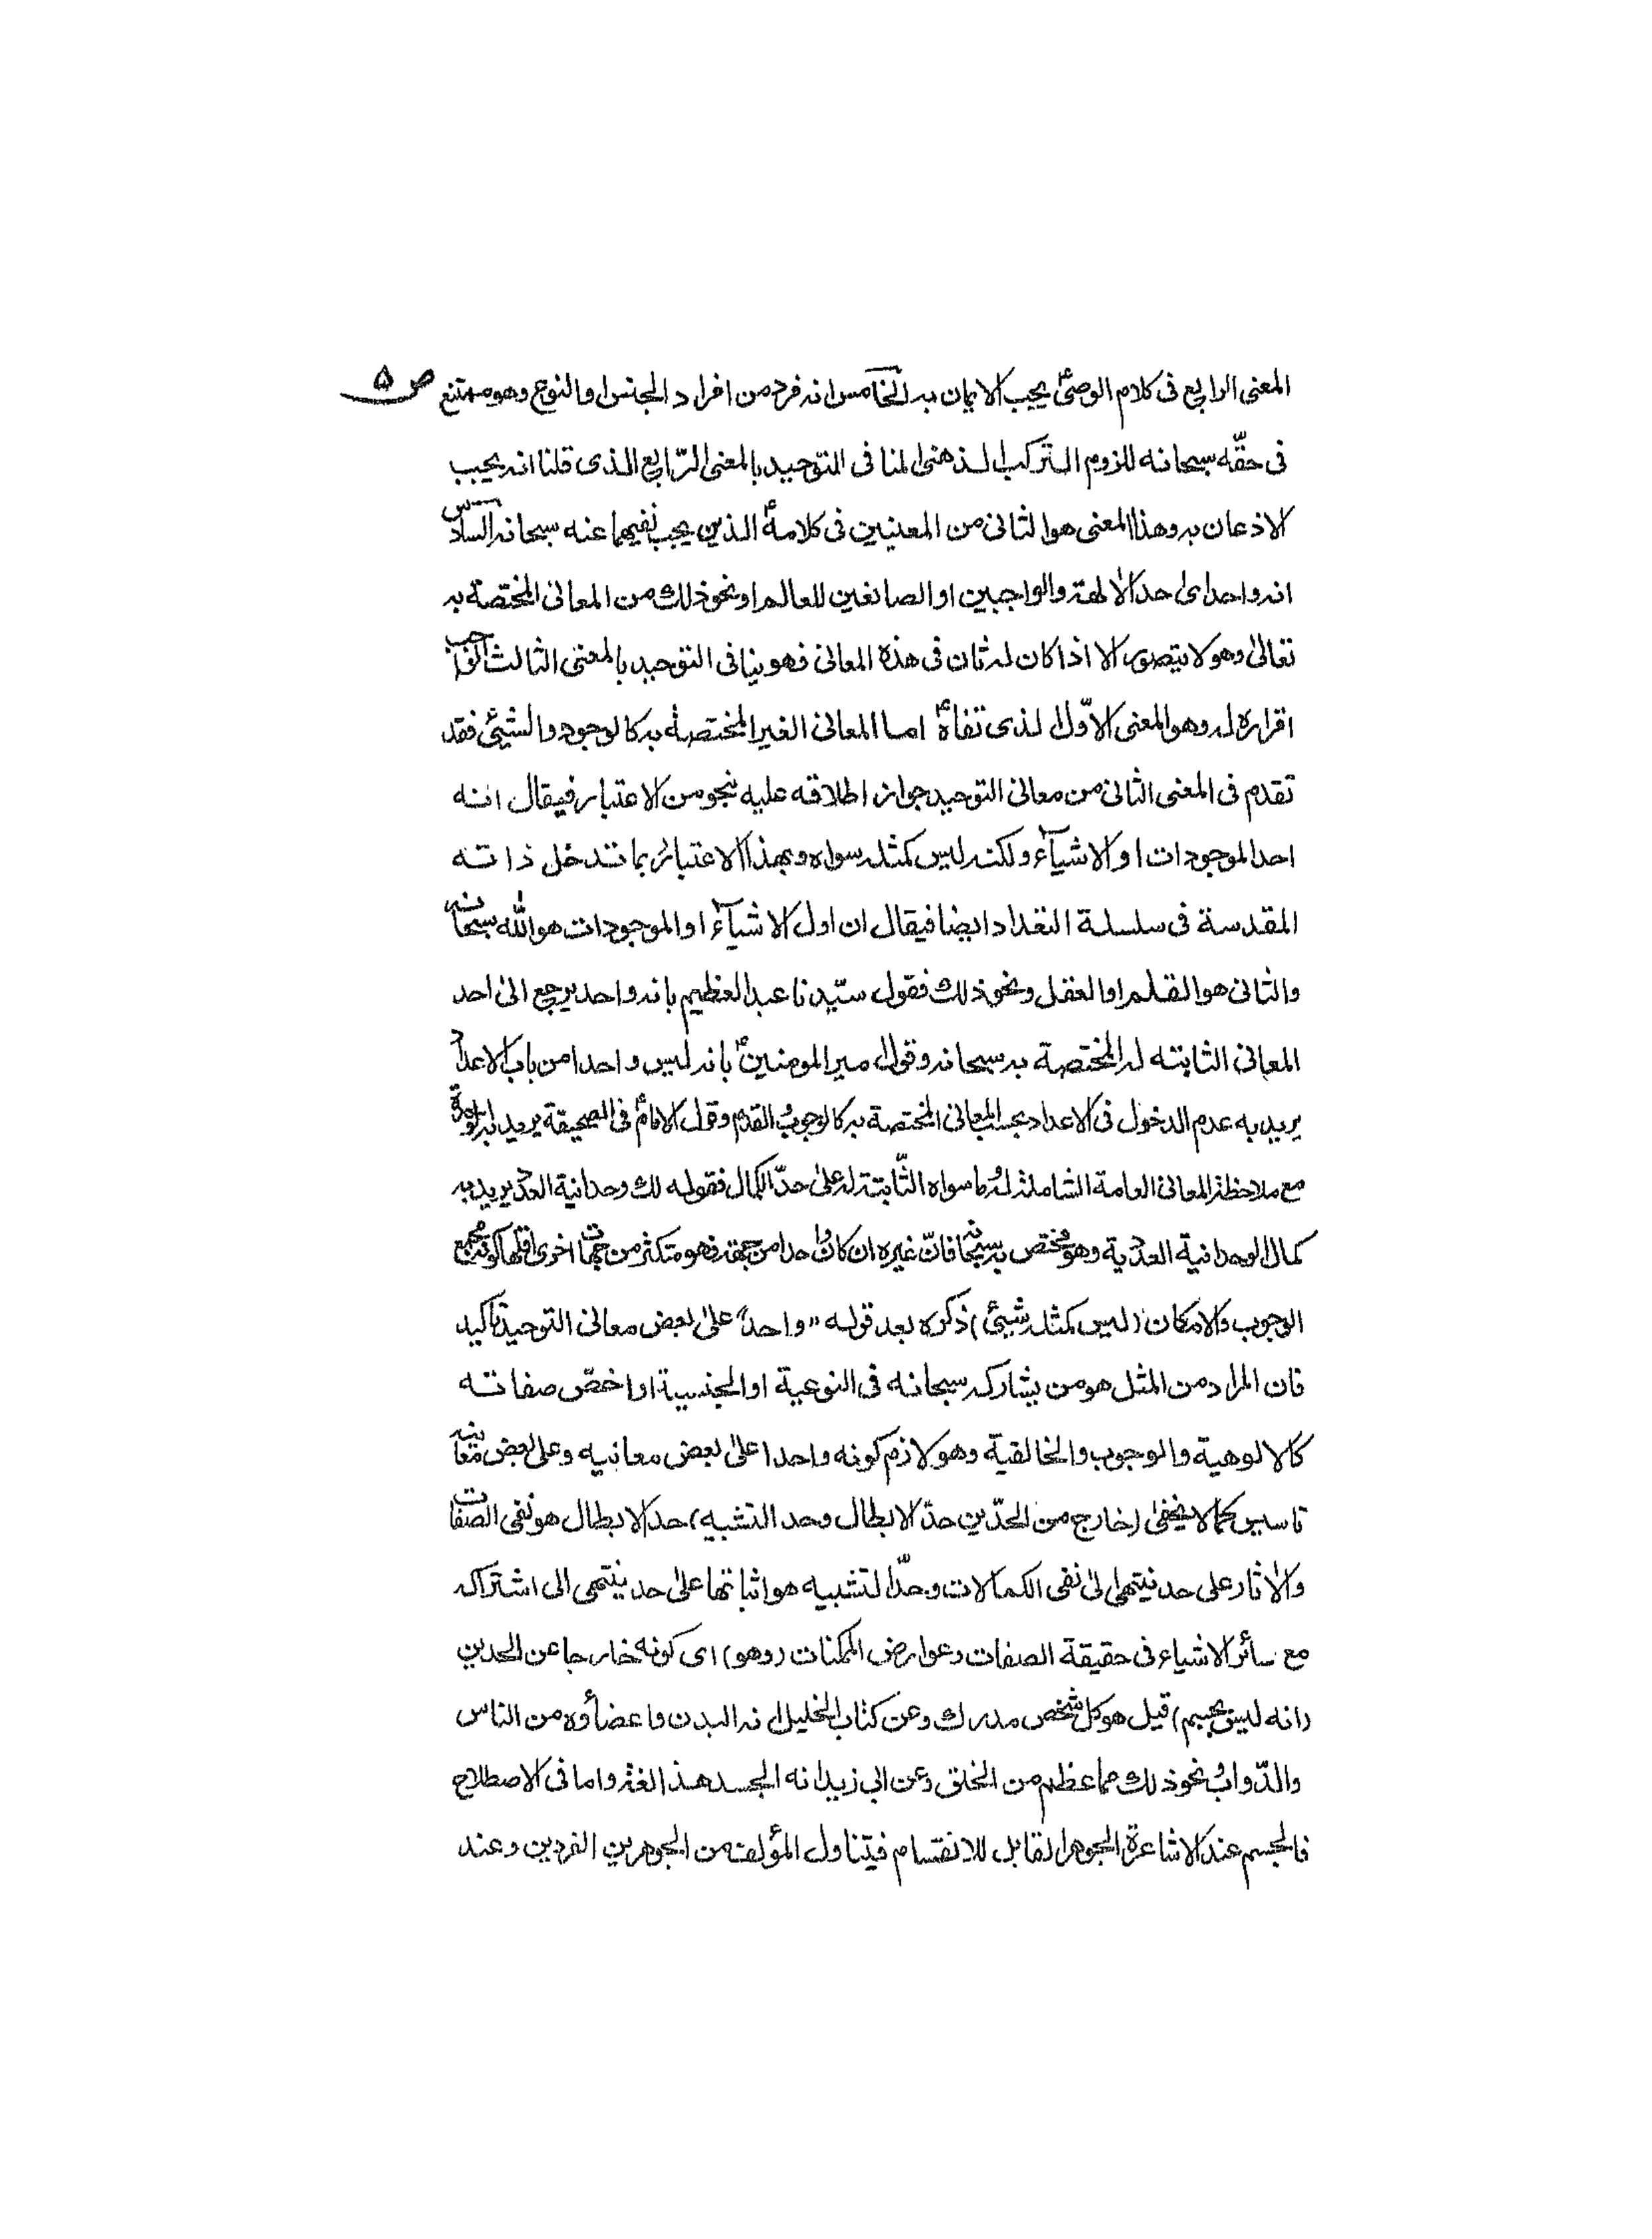 المعنى الرابع فى كلام الوصىؑ يجب الايمان به الخامس انه فرد من افراد الجنس او النوع وهو ممتنع ص ۵
فى حقّه سبحانه للزوم التركب الذهنى المنافى التوحيد بالمعنى الرّابع الذى قلنا انه يجب
الاذعان به وهذا المعنى هو الثانى من المعنيين فى كلامهؑ الذين يجب نفيهما عنه سبحانه السادس
انه واحد اى احد الالهة والواجبين او الصانعين للعالم او نحو ذلك من المعانى المختصة به
تعالىٰ وهو لا يتصور الا اذا كان له ثان فى هذه المعانى فهو ينافى التوحيد بالمعنى الثالث الواجب
اقراره له وهو المعنى الاوّل الذى نفاهؑ اما المعانى الغير المختصة به كالوجود والشيئ فقد
تقدم فى المعنى الثانى من معانى التوحيد جواز اطلاقه عليه بنحو من الاعتبار فيقال انه
احد الموجودات او الاشيآء ولكنه ليس كمثله سواه وبهذا الاعتبار ربما تدخل ذاته
المقدسة فى سلسلة التعداد ايضا فيقال ان اول الاشيآء او الموجودات هو الله سبحانه
والثانى هو القلم او العقل ونحو ذلك فقول سيّدنا عبد العظيم بانه واحد يرجع الىٰ احد
المعانى الثابته له المختصة به سبحانه وقول امير المومنينؑ بانه ليس واحدا من باب الاعداد
يريد به عدم الدخول فى الاعداد بحسب المعانى المختصة به كالوجوب والقدم وقول الامامؑ فى الصحيفة يريد به الوحدة
مع ملاحظة المعانى العامة الشاملة له ولما سواه الثّابتة له علىٰ حدّ الكمال فقوله لك وحدانية العدد يريد به
كمال الوحدانية العددية وهو مختص به سبحانه فانّ غيره ان كان واحدا من جهة فهو متكثر من جهات اخرى اقلها كونه مجمع
الوجوب والامكان (ليس كمثله شيئ) ذكره بعد قوله "واحد" علىٰ بعض معانى التوحيد تاكيد
فان المراد من المثل هو من يشاركه سبحانه فى النوعية او الجنسية او اخصّ صفاته
كالالوهية والوجوب والخالقية وهو لازم كونه واحدا علىٰ بعض معانيه وعلى بعض معانيه
تاسيس كما لا يخفىٰ (خارج من الحدّين حدّ الابطال وحد التشبيه) حد الابطال هو نفى الصفات
والاثار على حد ينتهى الىٰ نفى الكمالات وحدّ التشبيه هو اثباتها علىٰ حد ينتهى الى اشتراكه
مع سائر الاشياء فى حقيقة الصفات وعوارض الممكنات (وهو) اى كونه خارجا عن الحدين
(انه ليس بجسم) قيل هو كل شخص مدرك وعن كتاب الخليل انه البدن واعضاؤه من الناس
والدّواب ونحو ذلك مما عظم من الخلق وعن ابى زيد انه الجسد هذا لغة واما فى الاصطلاح
فالجسم عند الاشاعرة الجوهر القابل للانقسام فيتناول المؤلف من الجوهرين الفردين وعند